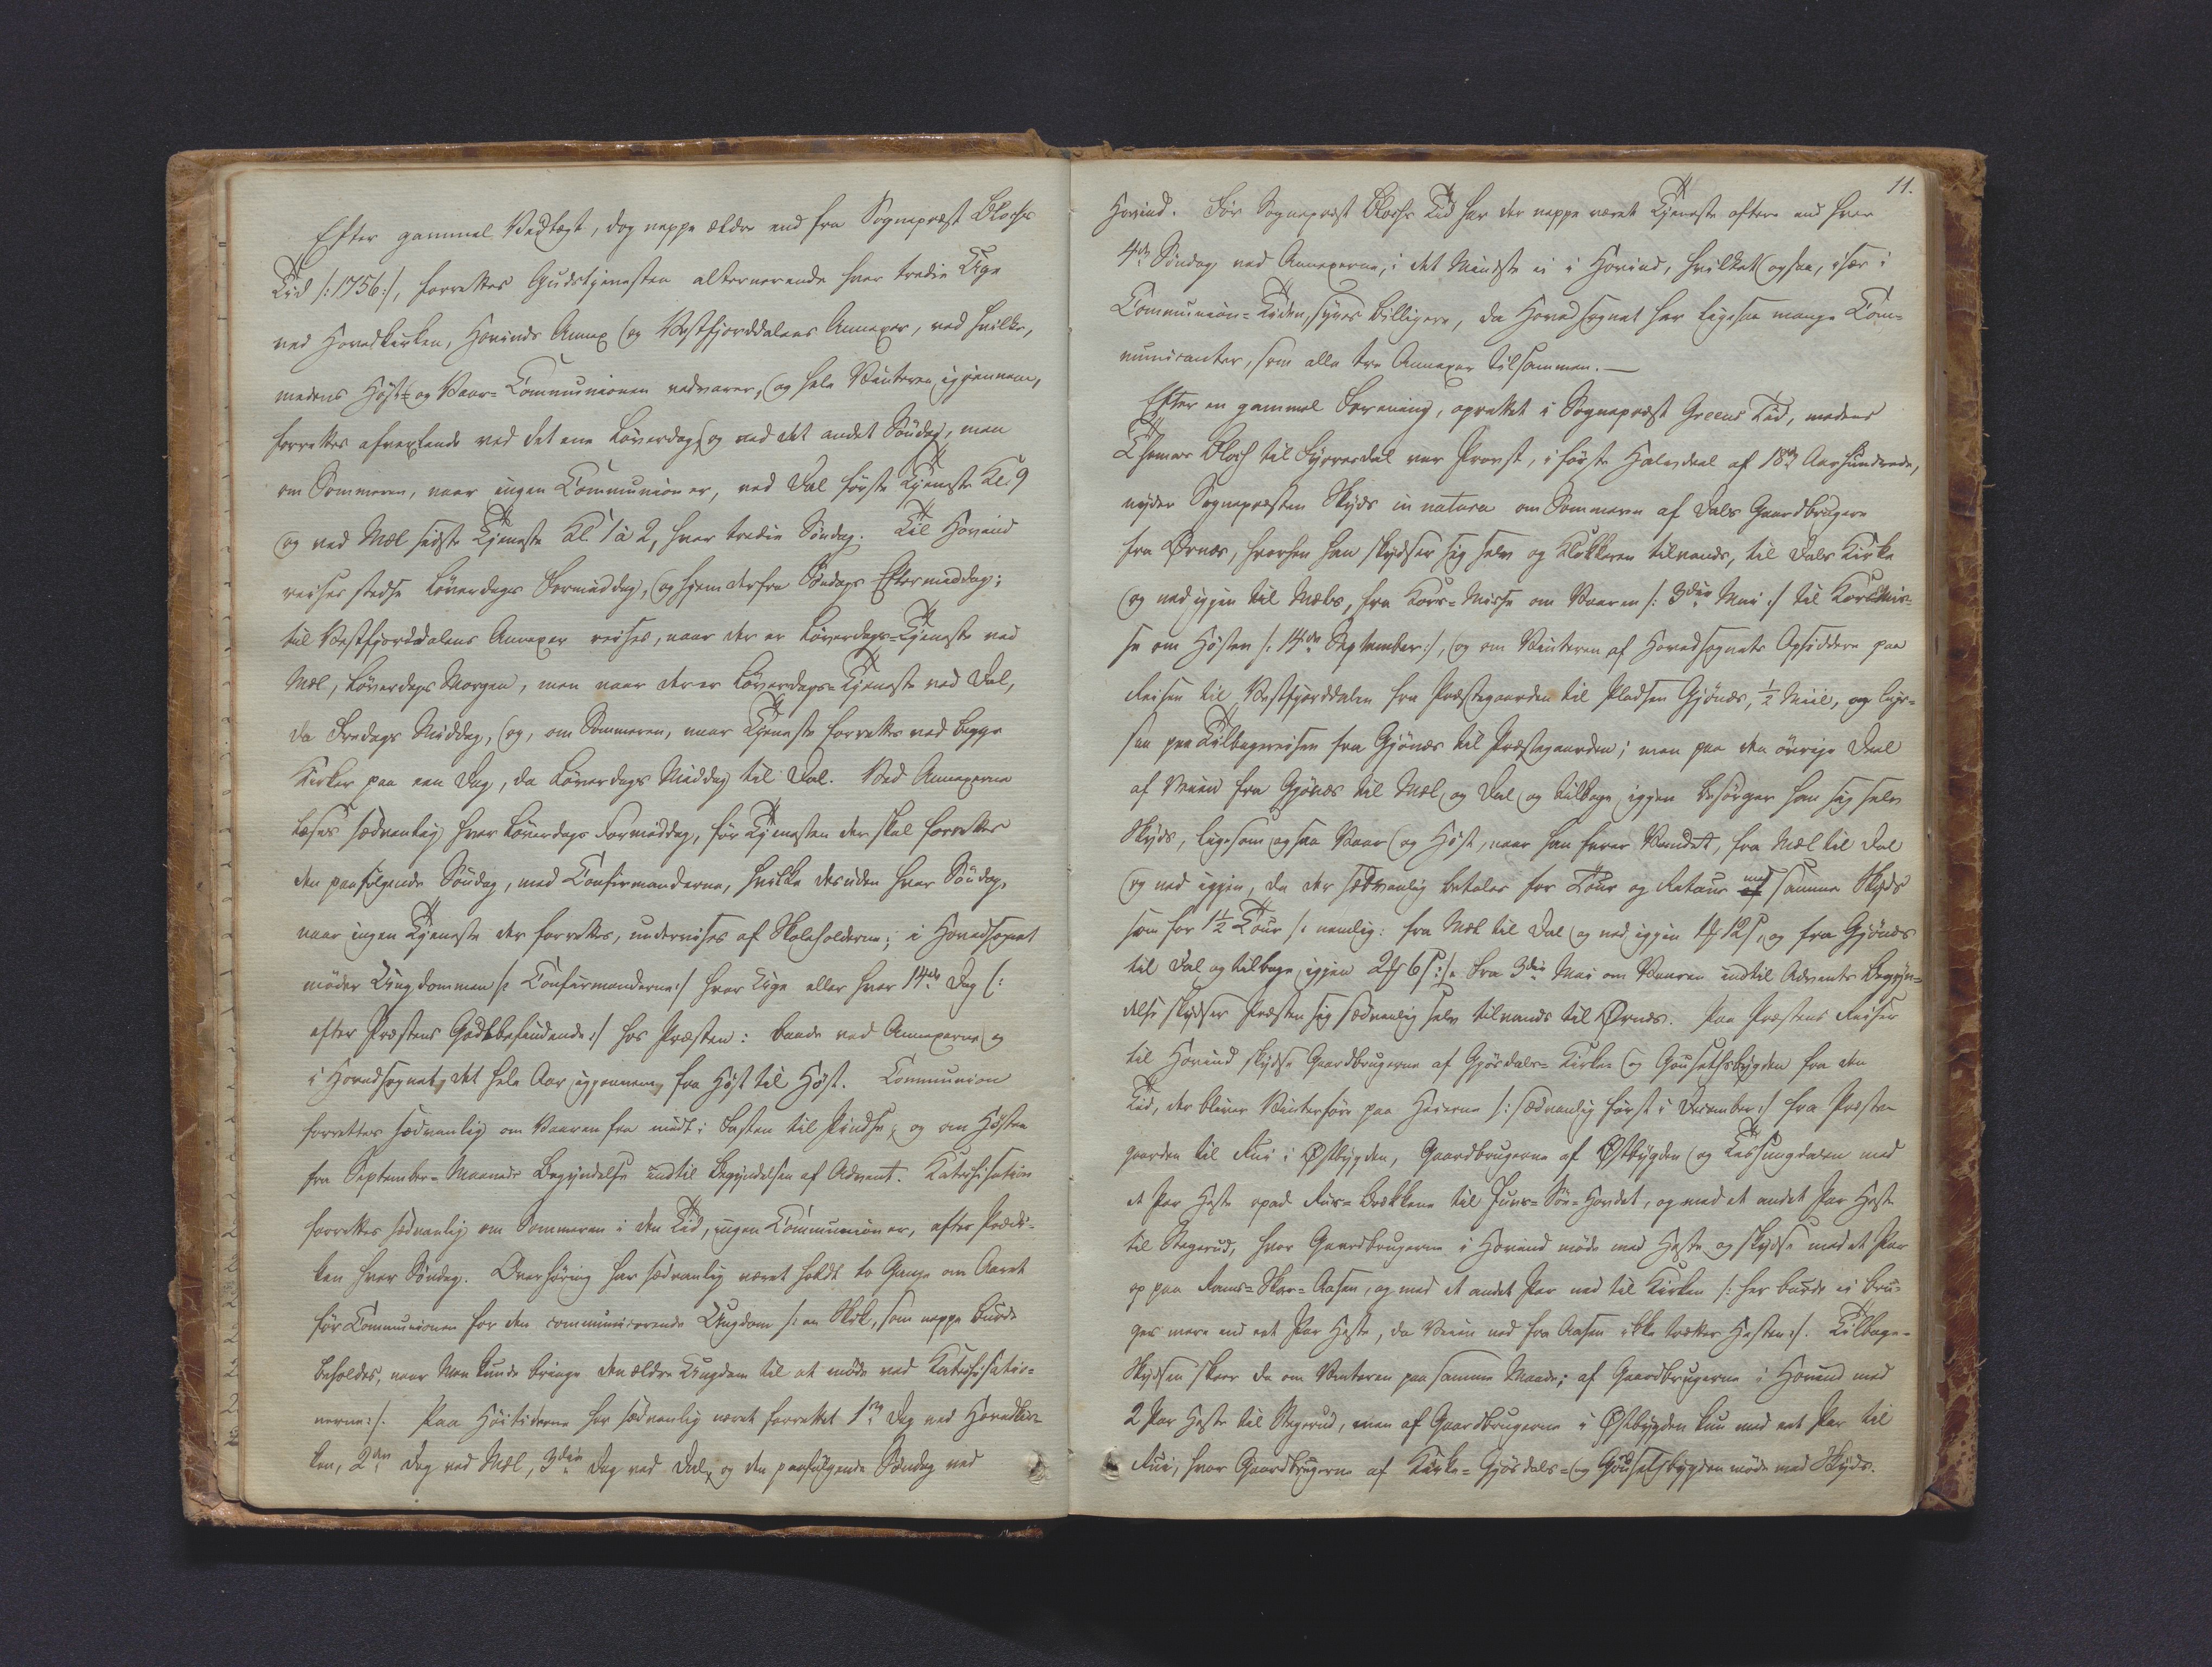 Efter gammel Vedtægt, dog neppe ældre end fra Sognepræst Blochs
Tid /: 1756 :/, forrettes Gudstjenesten alternerende hver tredie Uge
ved Hovedkirken, Hovinds Annex og Vestfjorddalens Annexer, ved hvilke,
medens Høst- og Vaar-Communionen vedvarer, og hele Vinteren igjennem,
forrettes afvexlende ved det ene Löverdag, og ved det andet Søndag, men
om Sommeren, naar ingen Communion er, ved Dal første Tjeneste Kl. 9
og ved Mæl sidste Tjeneste Kl 1 à 2, hver tredie Søndag. Til Hovind
reises stedse Löverdags Formiddag, og hjem derfra Søndags Eftermiddag;
til Vestfjorddalens Annexer reises, naar der er Löverdags-Tjeneste ved
Mæl, Löverdags Morgen, men naar der er Löverdags-Tjeneste ved Dal,
da Fredags Middag, og, om Sommeren, naar Tjeneste forrettes ved begge
Kirker paa een Dag, da Löverdags Middag til Dal. Ved Annexerne
læses sædvanlig hver Löverdags Formiddag, før Tjenesten der skal forrettes
den paafølgende Søndag, med Confirmanderne, hvilke desuden hver Søndag,
naar ingen Tjeneste der forrettes, undervises af Skoleholderne; i Hovedsognet
møder Ungdommen /: Confirmanderne :/ hver Uge eller hver 14de Dag /:
efter Præstens Godtbefindende :/ hos Præsten: baade ved Annexerne og
i Hovedsognet, det hele Aar igjennem, fra Høst til Høst. Communion
forrettes sædvanlig om Vaaren fra midt i Fasten til Pindse, og om Høsten
fra September-Maaneds Begyndelse indtil Begyndelsen af Advent. Katechisation
forrettes sædvanlig om Sommeren i den Tid, ingen Communion er, efter Prædi-
ken hver Søndag. Overhøring har sædvanlig været holdt to Gange om Aaret
før Communionen for den communicerende Ungdom /: en Skik, som neppe burde
beholdes, naar Man kunde bringe den ældre Ungdom til at møde ved Katechisatio-
nerne :/. Paa Høitiderne har sædvanlig været forrettet 1ste Dag ved Hovedkir-
ken, 2den Dag ved Mæl, 3die Dag ved Dal, og den paafølgende Søndag ved
11.
Hovind. Før Sognepræst Blochs Tid har der neppe været Tjeneste oftere end hver
4de Søndag ved Annexerne, i det Mindste ei i Hovind, hvilket ogsaa, især i
Communion-Tiden, synes billigere, da Hovedsognet har ligesaa mange Com-
municanter, som alle tre Annexer tilsammen. —
Efter en gammel Forening, oprettet i Sognepræst Greens Tid, medens
Thomas Bloch til Fyrresdal var Provst, i første Halvdeel af 18de Aarhundrede,
nyder Sognepræsten Skyds in natura om Sommeren af Dals Gaardbrugere
fra Ørnæs, hvorhen han skydser sig selv og Klokkeren tilvands, til Dals Kirke
og ned igjen til Mæls, fra Kors-Misse om Vaaren /: 3die Mai :/ til Korsmis-
se om Høsten /: 14de September :/, og om Vinteren af Hovedsognets Opsiddere paa
Reisen til Vestfjorddalen fra Præstegaarden til Pladsen Gjønæs, ½ Miil, og lige-
saa paa Tilbagereisen fra Gjønæs til Præstegaarden; men paa den øvrige Deel
af Veien fra Gjønæs til Mæl og Dal og tilbage igjen besørger han sig selv
Skyds, ligesom ogsaa Vaar og Høst, naar han farer Vandet, fra Mæl til Dal
og ned igjen, da der sædvanlig betales for Tour og Retour med samme Skyds
som for 1½ Tour /: nemlig: fra Mæl til Dal og ned igjen 1 12 , og fra Gjønæs
til Dal og tilbage igjen 2 6 :/. Fra 3die Mai om Vaaren indtil Advents Begyn-
delse skydser Præsten sig sædvanlig selv tilvands til Ørnæs. Paa Præstens Reiser
til Hovind skydse Gaardbrugerne af Gjøsdals-Kirke- og Gousetsbygden fra den
Tid, der bliver Vinterføre paa Heierne /: sædvanlig først i December :/ fra Præste-
gaarden til Rui i Østbygden, Gaardbrugerne af Østbygden og Tessungdalen med
et Par Heste opad Rus-Bækkene til Juus-Søe-Hovdet, og med et andet Par Heste
til Stegerud, hvor Gaardbrugerne i Hovind møde med Heste og skydse med et Par
op paa Rams-Skar-Aasen, og med et andet Par ned til Kirken /: her burde ei bru-
ges mere end eet Par Heste, da Veien ned fra Aasen ikke trætter Hesten :/. Tilbage-
Skydsen skeer da om Vinteren paa samme Maade; af Gaardbrugerne i Hovind med
2 Par Heste til Stegerud, men af Gaardbrugerne i Østbygden kun med eet Par til
Rui, hvor Gaardbrugerne af Kirke-Gjøsdals- og Gousetsbygden møde med Skyds.